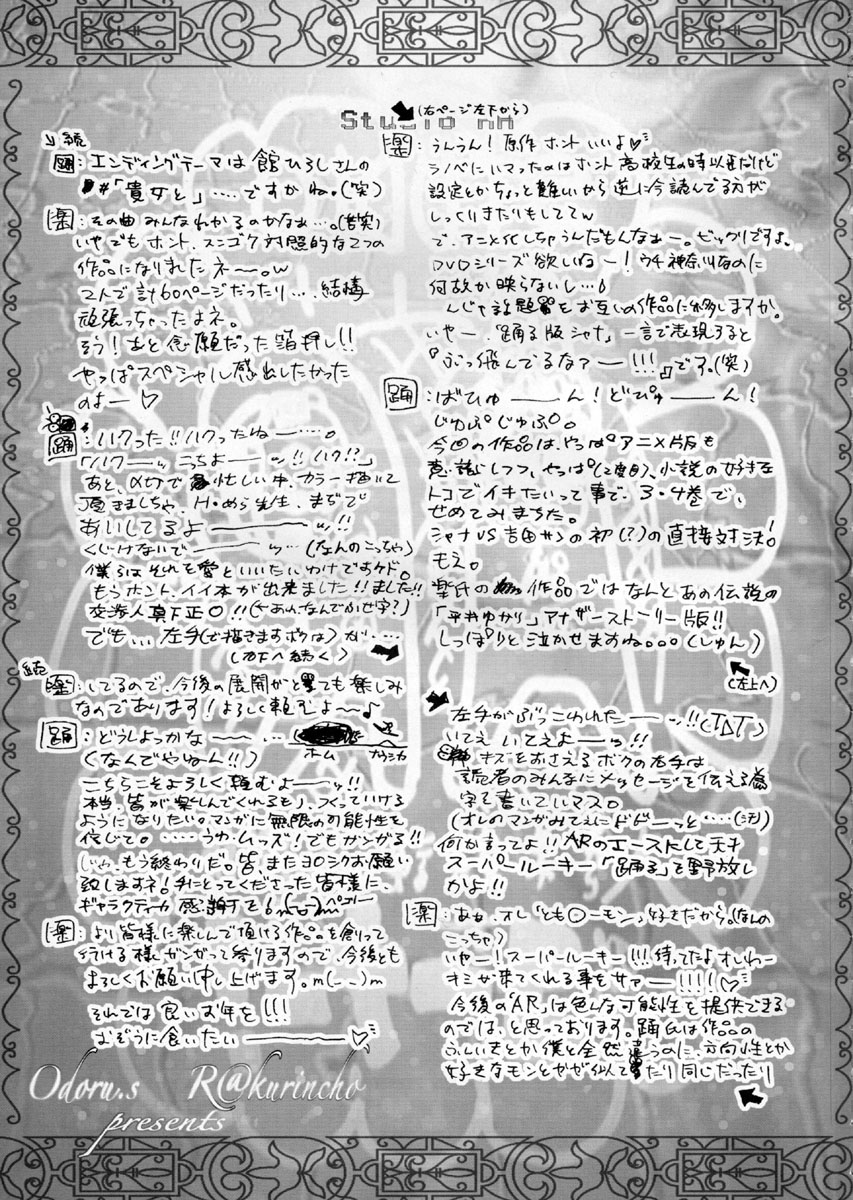 Studio
(右ページ左下から)
楽:うんうん!原作ホントいいよ♡
ラノベにハマったのはホント高校生の時以来だけど
設定とかちょっと難しいから逆に今読んでる方が
しっくりきたりもしててw
で、アニメ化しちゃうんだもんなぁー。ビックリですよ。
DVDシリーズ欲しいねー!ウチ神奈川なのに
何故か映らないし…
んじゃ話題をお互いの作品に移しますか。
いやー、「踊る版シャナ」一言で表現すると
『ぶっ飛んでるなァー!!!』です。(笑)
踊:ばひゅーーん!どぴゅーーん!
じゅぷじゅぷ。
今回の作品は、やっぱアニメ版も
意識しつつ、やっぱ(2度目)、小説の好きな
トコでイキたいって事で、3・4巻で、
せめてみまちた。
シャナVS吉田サンの初(?)の直接対決!
もえ。
楽氏の作品ではなんとあの伝説の
「平井ゆかり」アナザーストーリー版!!
しっぽりと泣かせますね。。。(しゅん)
(左上へ)
続
踊:エンディングテーマは舘ひろしさんの
#「貴女と」……ですかね。(笑)
楽:その曲みんなわかるのかなぁ…。(苦笑)
いやでもホント、スンゴク対照的な2つの
作品になりましたネー。w
2人で計60ページだったり…、結構
頑張っちゃったよネ。
そう!あと念願だった箔押し!!
やっぱスペシャル感出したかった
のよー♡
踊:ハクった!!ハクったねー…。
「ハクーッ こっちよーッ!!ハク!?」
あと、〆切で忙しい中、カラー描いて
頂きましちゃ、H・めら先生、まぢで
あいしてるよーーーッ!!
くじけないでーーーッ…(なんのこっちゃ)
僕らはそれを愛といいたいわけですケド。
もうホント、イイ本が出来ました!!ました!!
交渉人真下正○!!(←あれなんでふせ字?)
でも…、左手(で描きますボクは)が…
(右下へ続く)
左手がぶっこわれたーーッ!!(TДT)
いてえ いてえよーーッ!!
キズをおさえるボクの右手は
読者のみんなにメッセージを伝える為
字を書いていマス。
(オレのマンガみてえにドドーーっと……(ニヤリ)
何か言ってよ!!ARのエースとして天才
スーパールーキー「踊る」を野放し
かよ!!
楽:あぁ、オレ「とも○ーモン」好きだから。(なんの
こっちゃ)
いやー!スーパールーキー!!!待ってたよオレわー
キミが来てくれる事をサァー!!!!(♡
今後の「AR」は色んな可能性を提供できる
のでは、と思っております。踊氏は作品の
ふんいきとか僕と全然違うのに、方向性とか
好きなモンとかが似てたり同じだったり
続
楽:してるので、今後の展開がとても楽しみ
なのであります!よろしく頼むよ〜♪
踊:どうしよっかな〜…
ホーム
(なんでやねん!!)
こちらこそよろしく頼むよーッ!!
本当、皆が楽しんでくれるもノ、つくっていける
ようになりたい。マンガに無限の可能性を
信じて。……うわ、ムッズ!でもガンがる!!
じゃ、もう終わりだ。皆、またヨロシクお願い
致しますネ!手にとってくださった皆様に、
ギャラクティカ感謝を6m(_ _)mペコリー
楽:より皆様に楽しんで頂ける作品を創って
行ける様、ガンガって参りますので、今後とも
よろしくお願い申し上げます。m(_ _)m
それでは良いお年を!!!
おぞうに食いたいーーーー♡
Odoru.s R@kurincho
presents